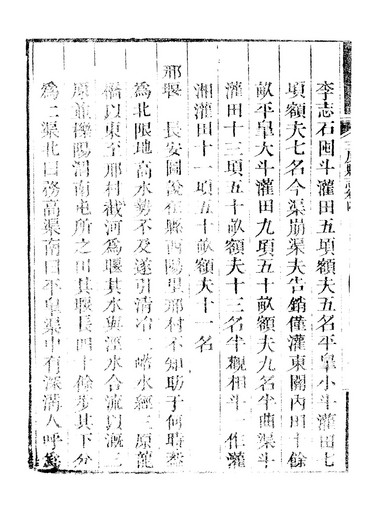 李志石囤斗灌田五項額夫五名平皐小斗灌田七
項額夫七名今渠崩渠夫告銷僅灌東關內田十餘
畝平皐大斗灌田九項五十畝額夫九名半曲渠斗
灌田十三項五十畝額夫十三名半觀相斗 作灌
湘灌田十一項五十畝額夫十一名
邢堰 長安圖說在縣西陽里邢村不知助于何時蓋
為北限地高水勢不及遂引清冶二峪水經三原龍
橋以東至邢村截河為堰其水與涇水合流以溉三
原並櫟陽渭南屯所之田其堰長四十餘步其下分
為二渠北曰務高渠南曰平皐渠中有深溝人呼為